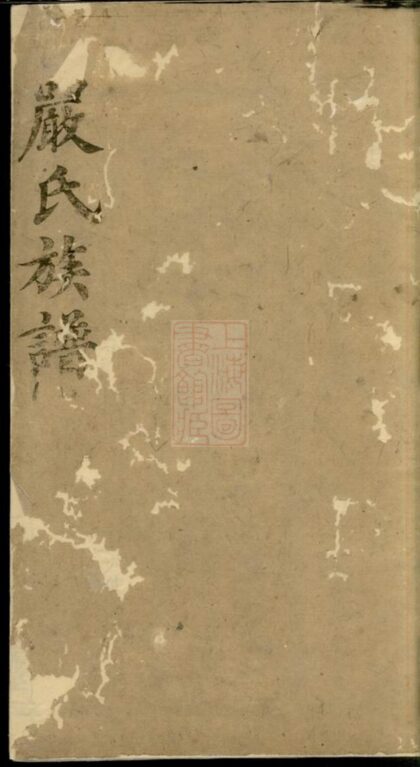 嚴氏族譜
上海圖
書館藏